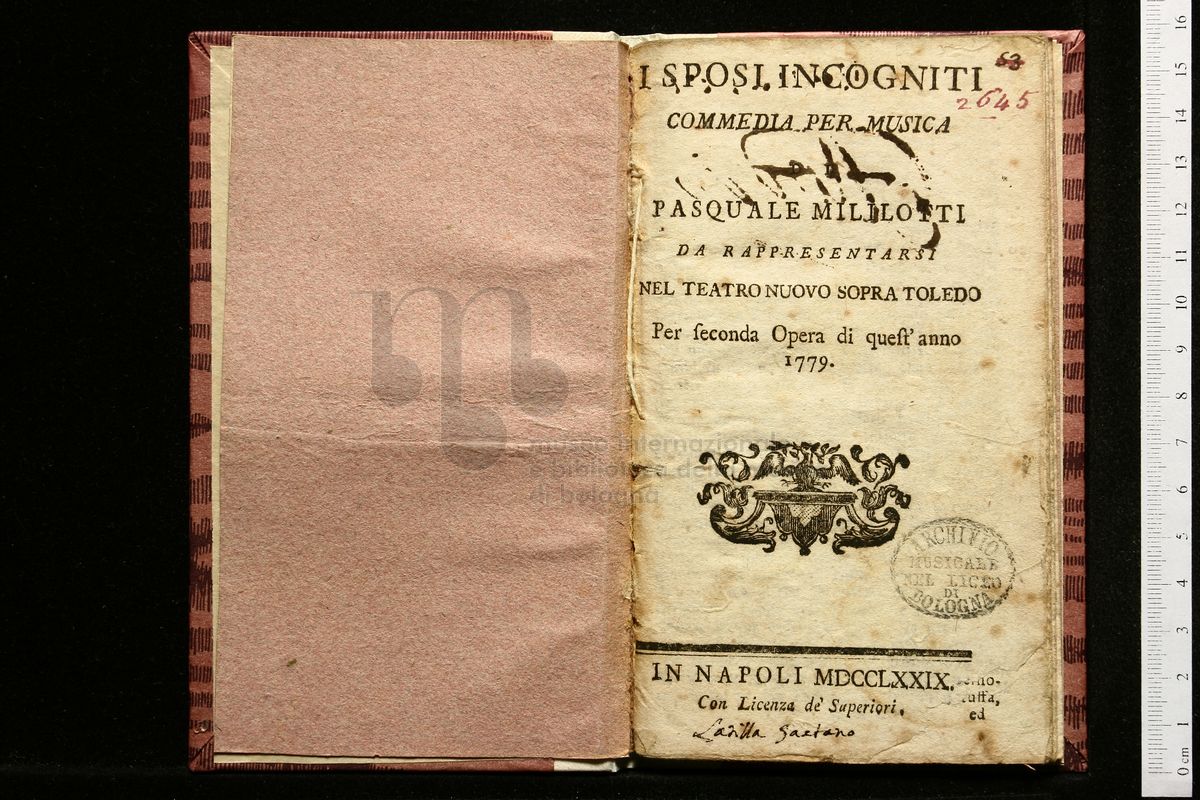 I SPOSI INCOGNITI
63
2645
COMMEDIA PER MUSICA
DI
PASQUALE MILILOTTI
DA RAPPRESENTARSI
NEL TEATRO NUOVO SOPRA TOLEDO
Per ſeconda Opera di queſt' anno
1779.
museo internazionale
biblioteca della
di bologna
ARCHIVIO
MUSICALE
NEL LICEO
DI
BOLOGNA
IN NAPOLI MDCCLXXIX.
Con Licenza de' Superiori.
ed
Latilla Gaetano
16
15
14
13
12
11
10
9
8
7
6
5
4
3
2
1
0 cm